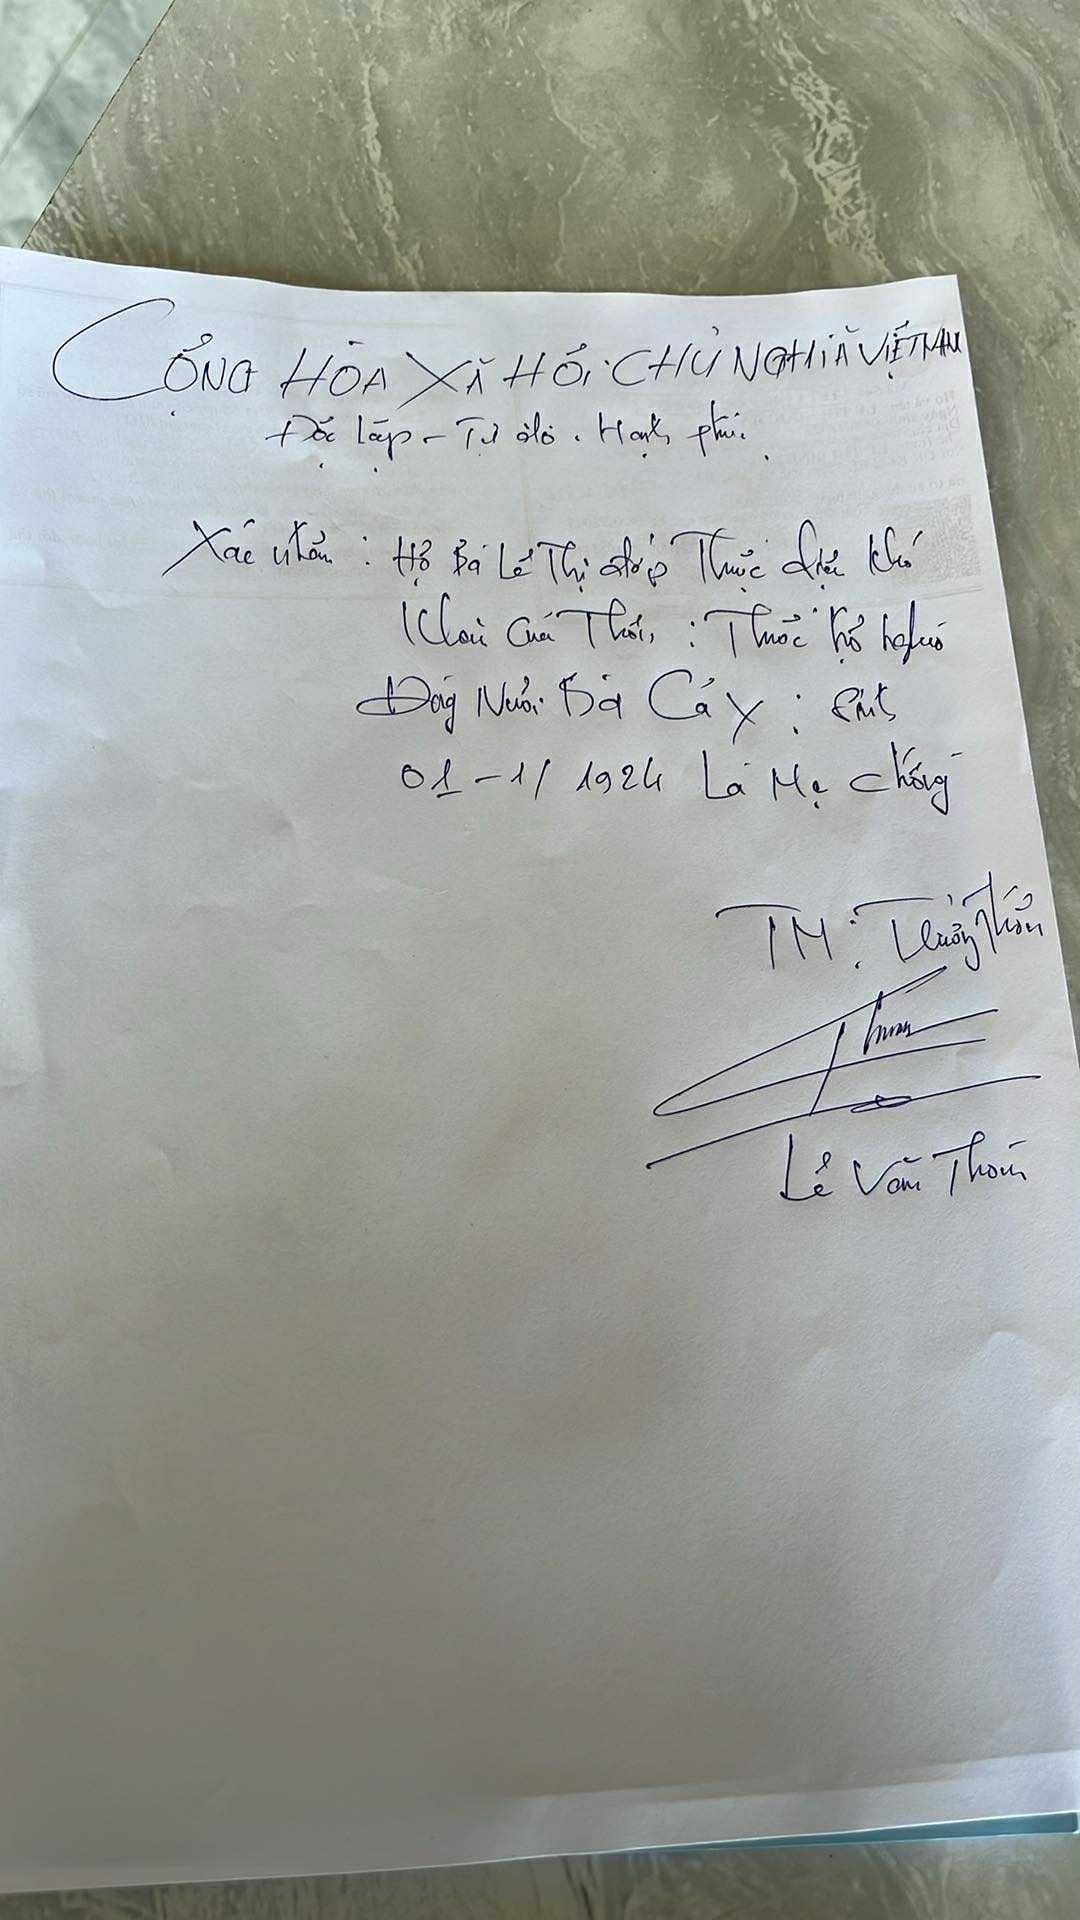 CỘNG HÒA XÃ HỘI CHỦ NGHĨA VIỆT NAM
Độc lập - Tự do. Hạnh phúc
Xác nhận : Hộ Bà Lê Thị đốp Thuộc diện khó
Khăn Của Thôn, : Thuộc hộ nghèo
Đang Nuôi Bà Cả Y : Sinh
01-1/1924 Là Mẹ chồng
TM: Trưởng Thôn
Lê Văn